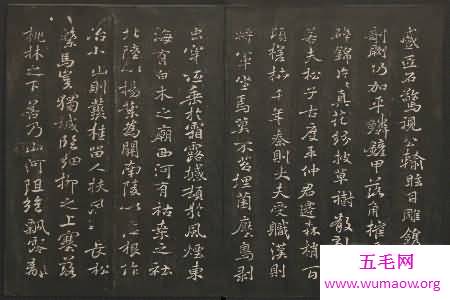 匠石驚視公輸眩目雕鐫
剞劂仍加平鱗鏟甲落角摧
碎錦片真花紛披草樹散
若夫松子古度平仲君遷森梢百
頃槎枿千年秦則大夫受職漢則
將軍坐焉莫不苔埋菌壓鳥剥
虫穿垂於霜露撼頓於風煙東
海有白木之廟西河有枯桑之社
北陸以楊葉為關南陵以梅根作
冶小山則藂桂留人扶風長松
繫馬豈獨城臨細柳之上塞落
桃林之下若乃山河阻絶飄零離
五毛网
www.wumaow.org